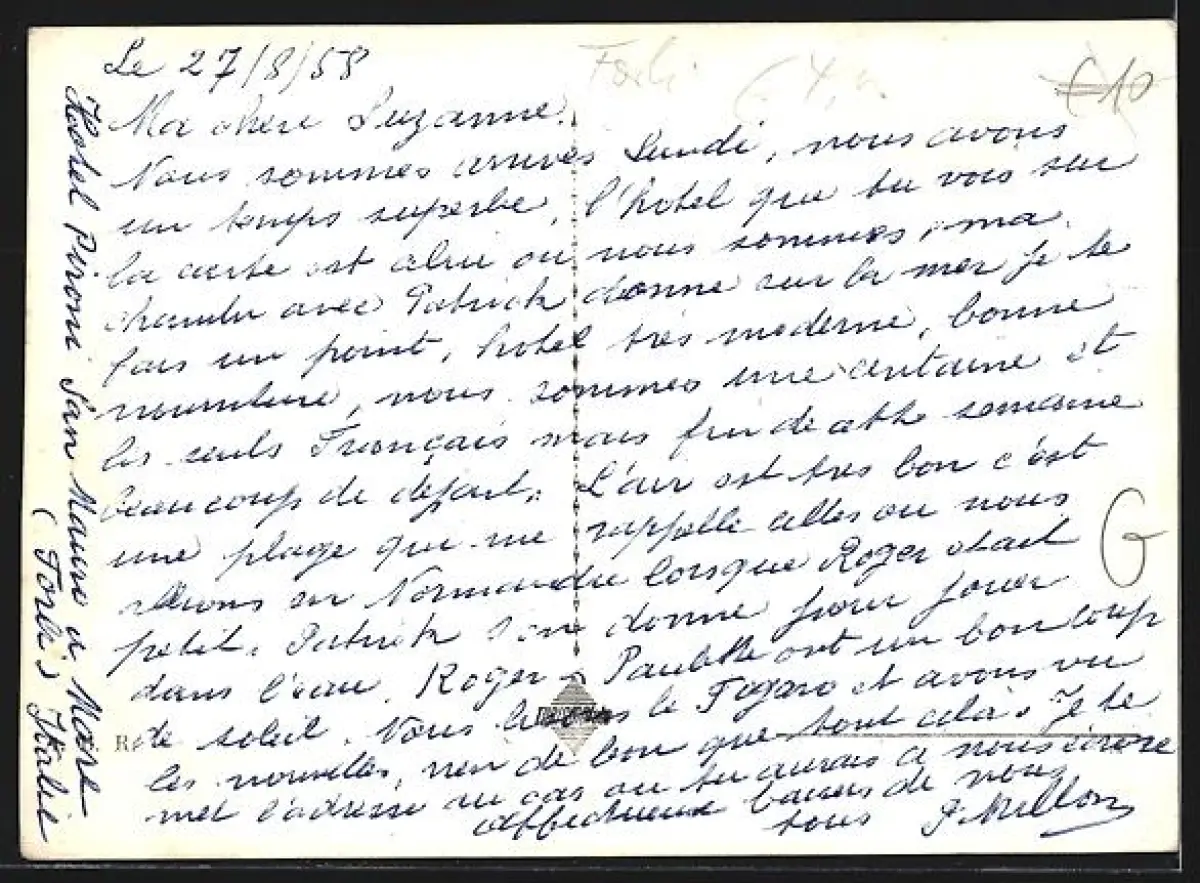 Le 27/8/58
Ma chère Suzanne.
Nous sommes arrivés Lundi, nous avons
un temps superbe, l'hotel que tu vois sur
la carte est celui où nous sommes, ma
chambre avec Patrick donne sur la mer je te
fais un point, hotel très moderne, bonne
nourriture, nous sommes une centaine et
les seuls Français mais fin de cette semaine
beaucoup de départ. L'air est très bon c'est
une plage qui me rappelle celles ou nous
allions en Normandie lorsque Roger était
petit. Patrick s'en donne pour jouer
dans l'eau. Roger Paulette ont un bon coup
de soleil. Nous lisons le Figaro et avons vu
les nouvelles, rien de bon que tout cela. Je te
met l'adresse au cas ou tu aurais a nous écrire
affectueux baisers de nous
tous J. Millon
Hotel Peroni San Mauro a Mare
(Forli) Italie
Forli
€10
G
R